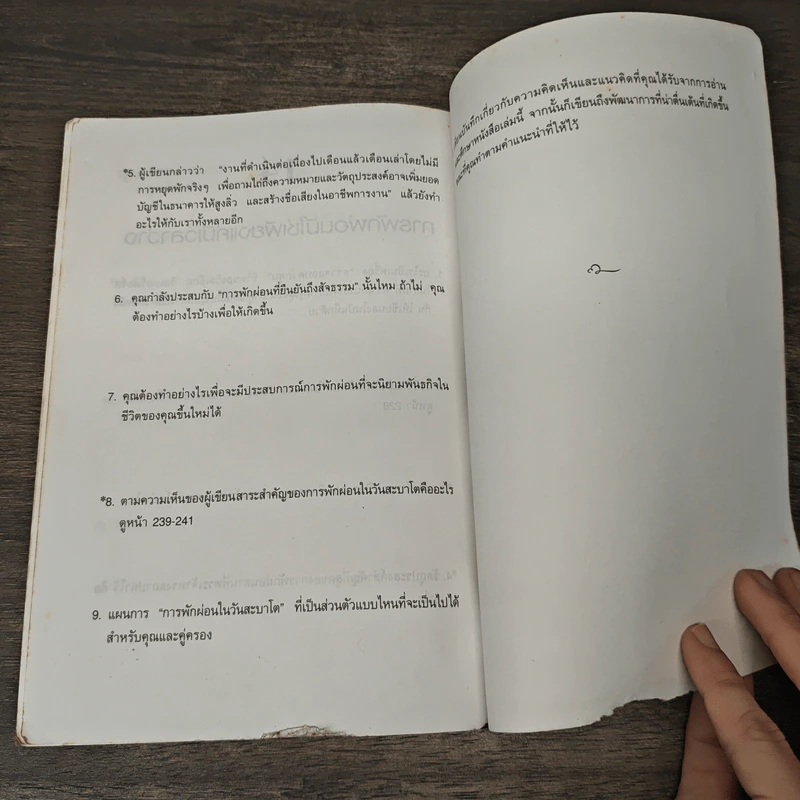 *5. ผู้เขียนกล่าวว่า "งานที่ดำเนินต่อเนื่องไปเดือนแล้วเดือนเล่าโดยไม่มี
การหยุดพักจริงๆ เพื่อถามไถ่ถึงความหมายและวัตถุประสงค์อาจเพิ่มยอด
บัญชีในธนาคารให้สูงลิ่ว และสร้างชื่อเสียงในอาชีพการงาน" แล้วยังทำ
อะไรให้กับเราทั้งหลายอีก
6. คุณกำลังประสบกับ "การพักผ่อนที่ยืนยันถึงสัจธรรม" นั้นไหม ถ้าไม่ คุณ
ต้องทำอย่างไรบ้างเพื่อให้เกิดขึ้น
7. คุณต้องทำอย่างไรเพื่อจะมีประสบการณ์การพักผ่อนที่จะนิยามพันธกิจใน
ชีวิตของคุณขึ้นใหม่ได้
*8. ตามความเห็นของผู้เขียนสาระสำคัญของการพักผ่อนในวันสะบาโตคืออะไร
ดูหน้า 239-241
9. แผนการ "การพักผ่อนในวันสะบาโต" ที่เป็นส่วนตัวแบบไหนที่จะเป็นไปได้
สำหรับคุณและคู่ครอง
บันทึกเกี่ยวกับความคิดเห็นและแนวคิดที่คุณได้รับจากการอ่าน
ศึกษาหนังสือเล่มนี้ จากนั้นก็เขียนถึงพัฒนาการที่น่าตื่นเต้นที่เกิดขึ้น
ที่คุณทำตามคำแนะนำที่ให้ไว้